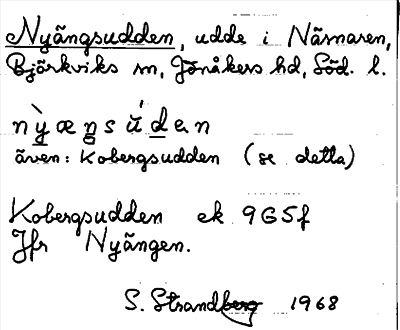 Nyängsudden, udde i Närnaren,
Björkviks sn, Jönåkers hd, Söd. l.
nỳæŋsúdən
även: Kobergsudden (se detta)
Kobergsudden ek 9G5f
Jfr Nyängen.
S. Strandberg 1968